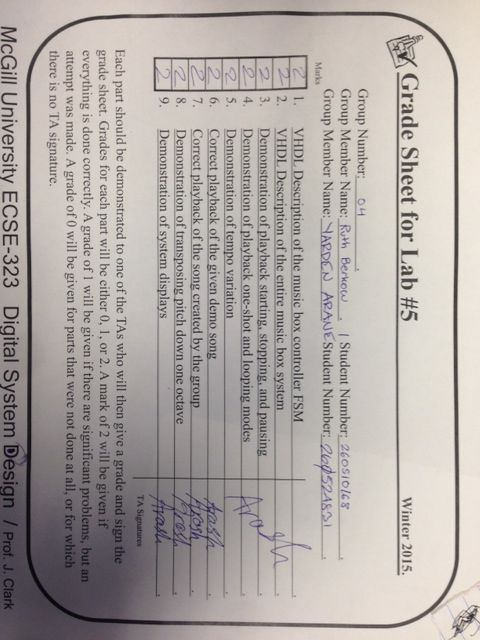 Grade Sheet for Lab #5 Winter 2015.
Group Number: 04.
Group Member Name: Ruth Berkow. Student Number: 260510168
Group Member Name: YARDEN ARANE Student Number: 260524831.
Marks
2 1. VHDL Description of the music box controller FSM
2 2. VHDL Description of the entire music box system
2 3. Demonstration of playback starting, stopping, and pausing
2 4. Demonstration of playback one-shot and looping modes
2 5. Demonstration of tempo variation
2 6. Correct playback of the given demo song Arash
2 7. Correct playback of the song created by the group Arash
2 8. Demonstration of transposing pitch down one octave Arash
2 9. Demonstration of system displays Arash
TA Signatures
Each part should be demonstrated to one of the TAs who will then give a grade and sign the
grade sheet. Grades for each part will be either 0, 1, or 2. A mark of 2 will be given if
everything is done correctly. A grade of 1 will be given if there are significant problems, but an
attempt was made. A grade of 0 will be given for parts that were not done at all, or for which
there is no TA signature.
McGill University ECSE-323 Digital System Design / Prof. J. Clark